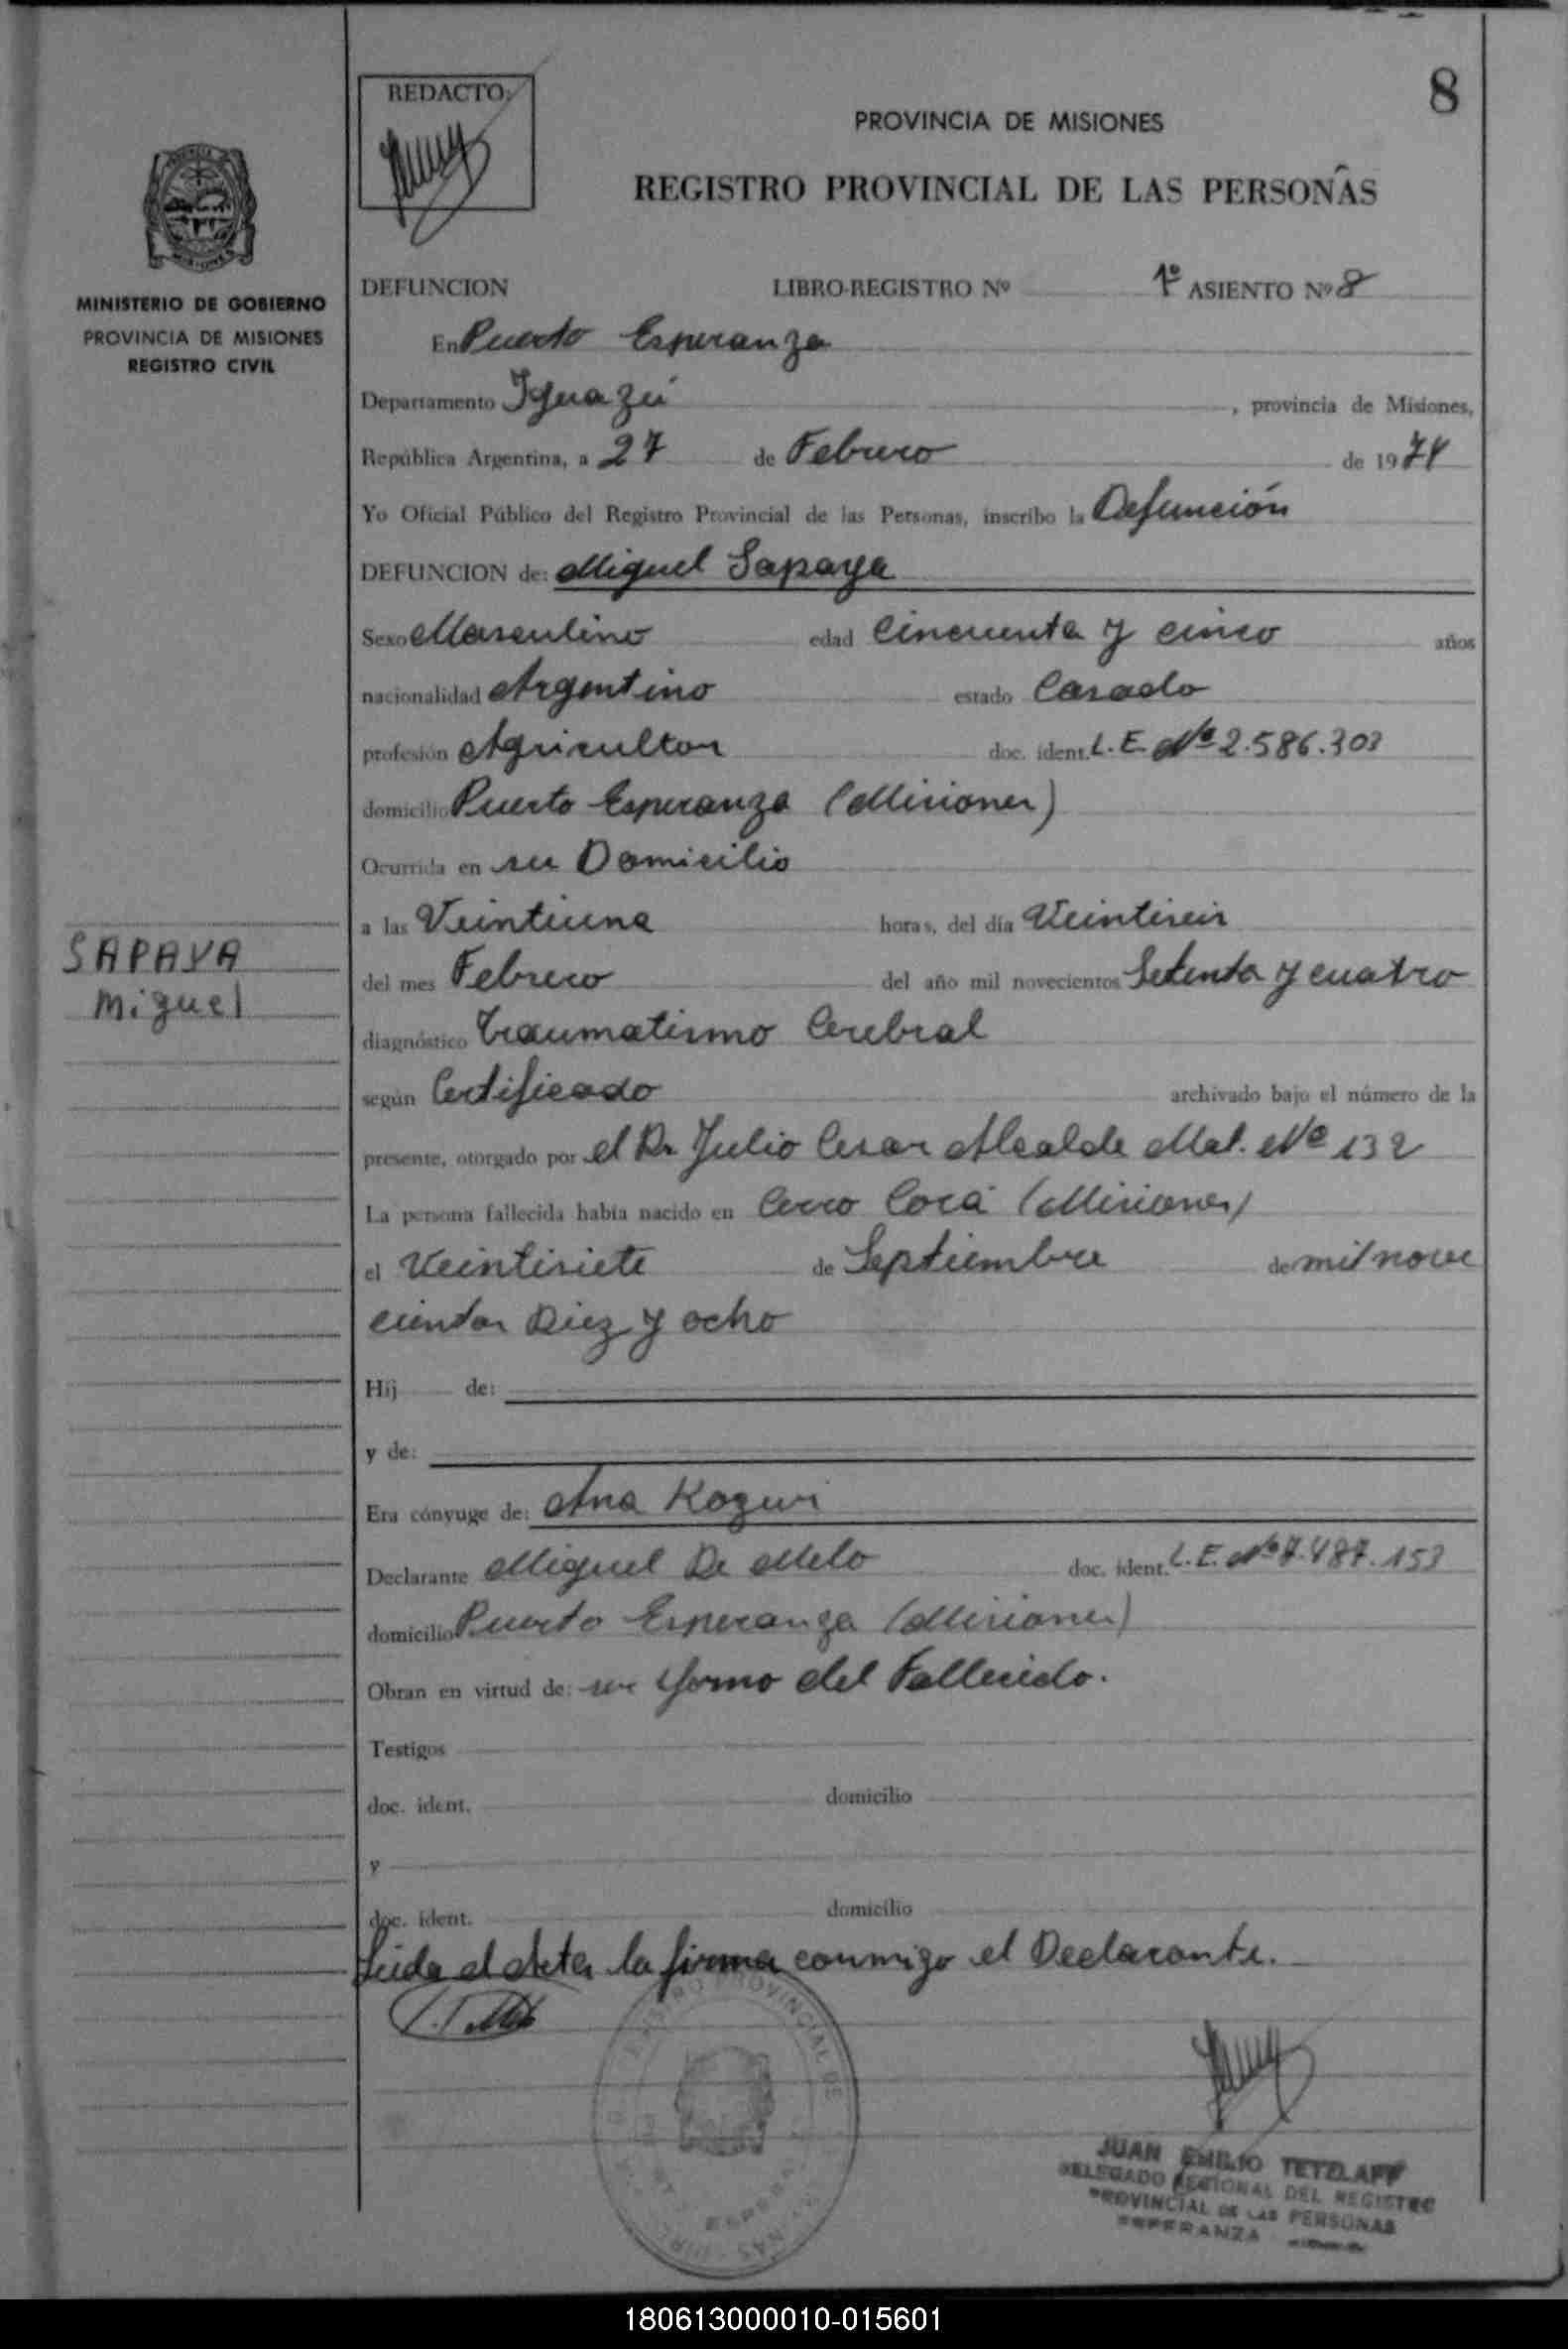 8
REDACTO:
PROVINCIA DE MISIONES
REGISTRO PROVINCIAL DE LAS PERSONAS
MINISTERIO DE GOBIERNO
PROVINCIA DE MISIONES
REGISTRO CIVIL
SAPAYA
Miguel
DEFUNCION LIBRO-REGISTRO Nº 1º ASIENTO Nº 8
En Puerto Esperanza
Departamento Iguazú, provincia de Misiones,
República Argentina, a 27 de Febrero de 1974
Yo Oficial Público del Registro Provincial de las Personas, inscribo la Defunción
DEFUNCION de: Miguel Sapaya
Sexo Masculino edad Cincuenta y cinco años
nacionalidad Argentino estado Casado
profesión Agricultor doc. ident. L.E. Nº 2.586.303
domicilio Puerto Esperanza (Misiones)
Ocurrida en su Domicilio
a las Veintiuna horas, del día Veintiseis
del mes Febrero del año mil novecientos Setenta y cuatro
diagnóstico Traumatismo Cerebral
según Certificado archivado bajo el número de la
presente, otorgado por el Dr Julio Cesar Alcalde Mat. Nº 132
La persona fallecida había nacido en Cerro Corá (Misiones)
el Veintisiete de Septiembre de mil nove
cientos Diez y ocho
Hij de:
y de:
Era cónyuge de: Ana Kozuri
Declarante Miguel De Melo doc. ident. L.E. Nº 7.487.153
domicilio Puerto Esperanza (Misiones)
Obran en virtud de: ser Yerno del Fallecido.
Testigos
doc. ident. domicilio
y
doc. ident. domicilio
Leida el Acta la firma conmigo el Declarante.
JUAN EMILIO TETZLAFF
DELEGADO REGIONAL DEL REGISTRO
PROVINCIAL DE LAS PERSONAS
ESPERANZA
180613000010-015601